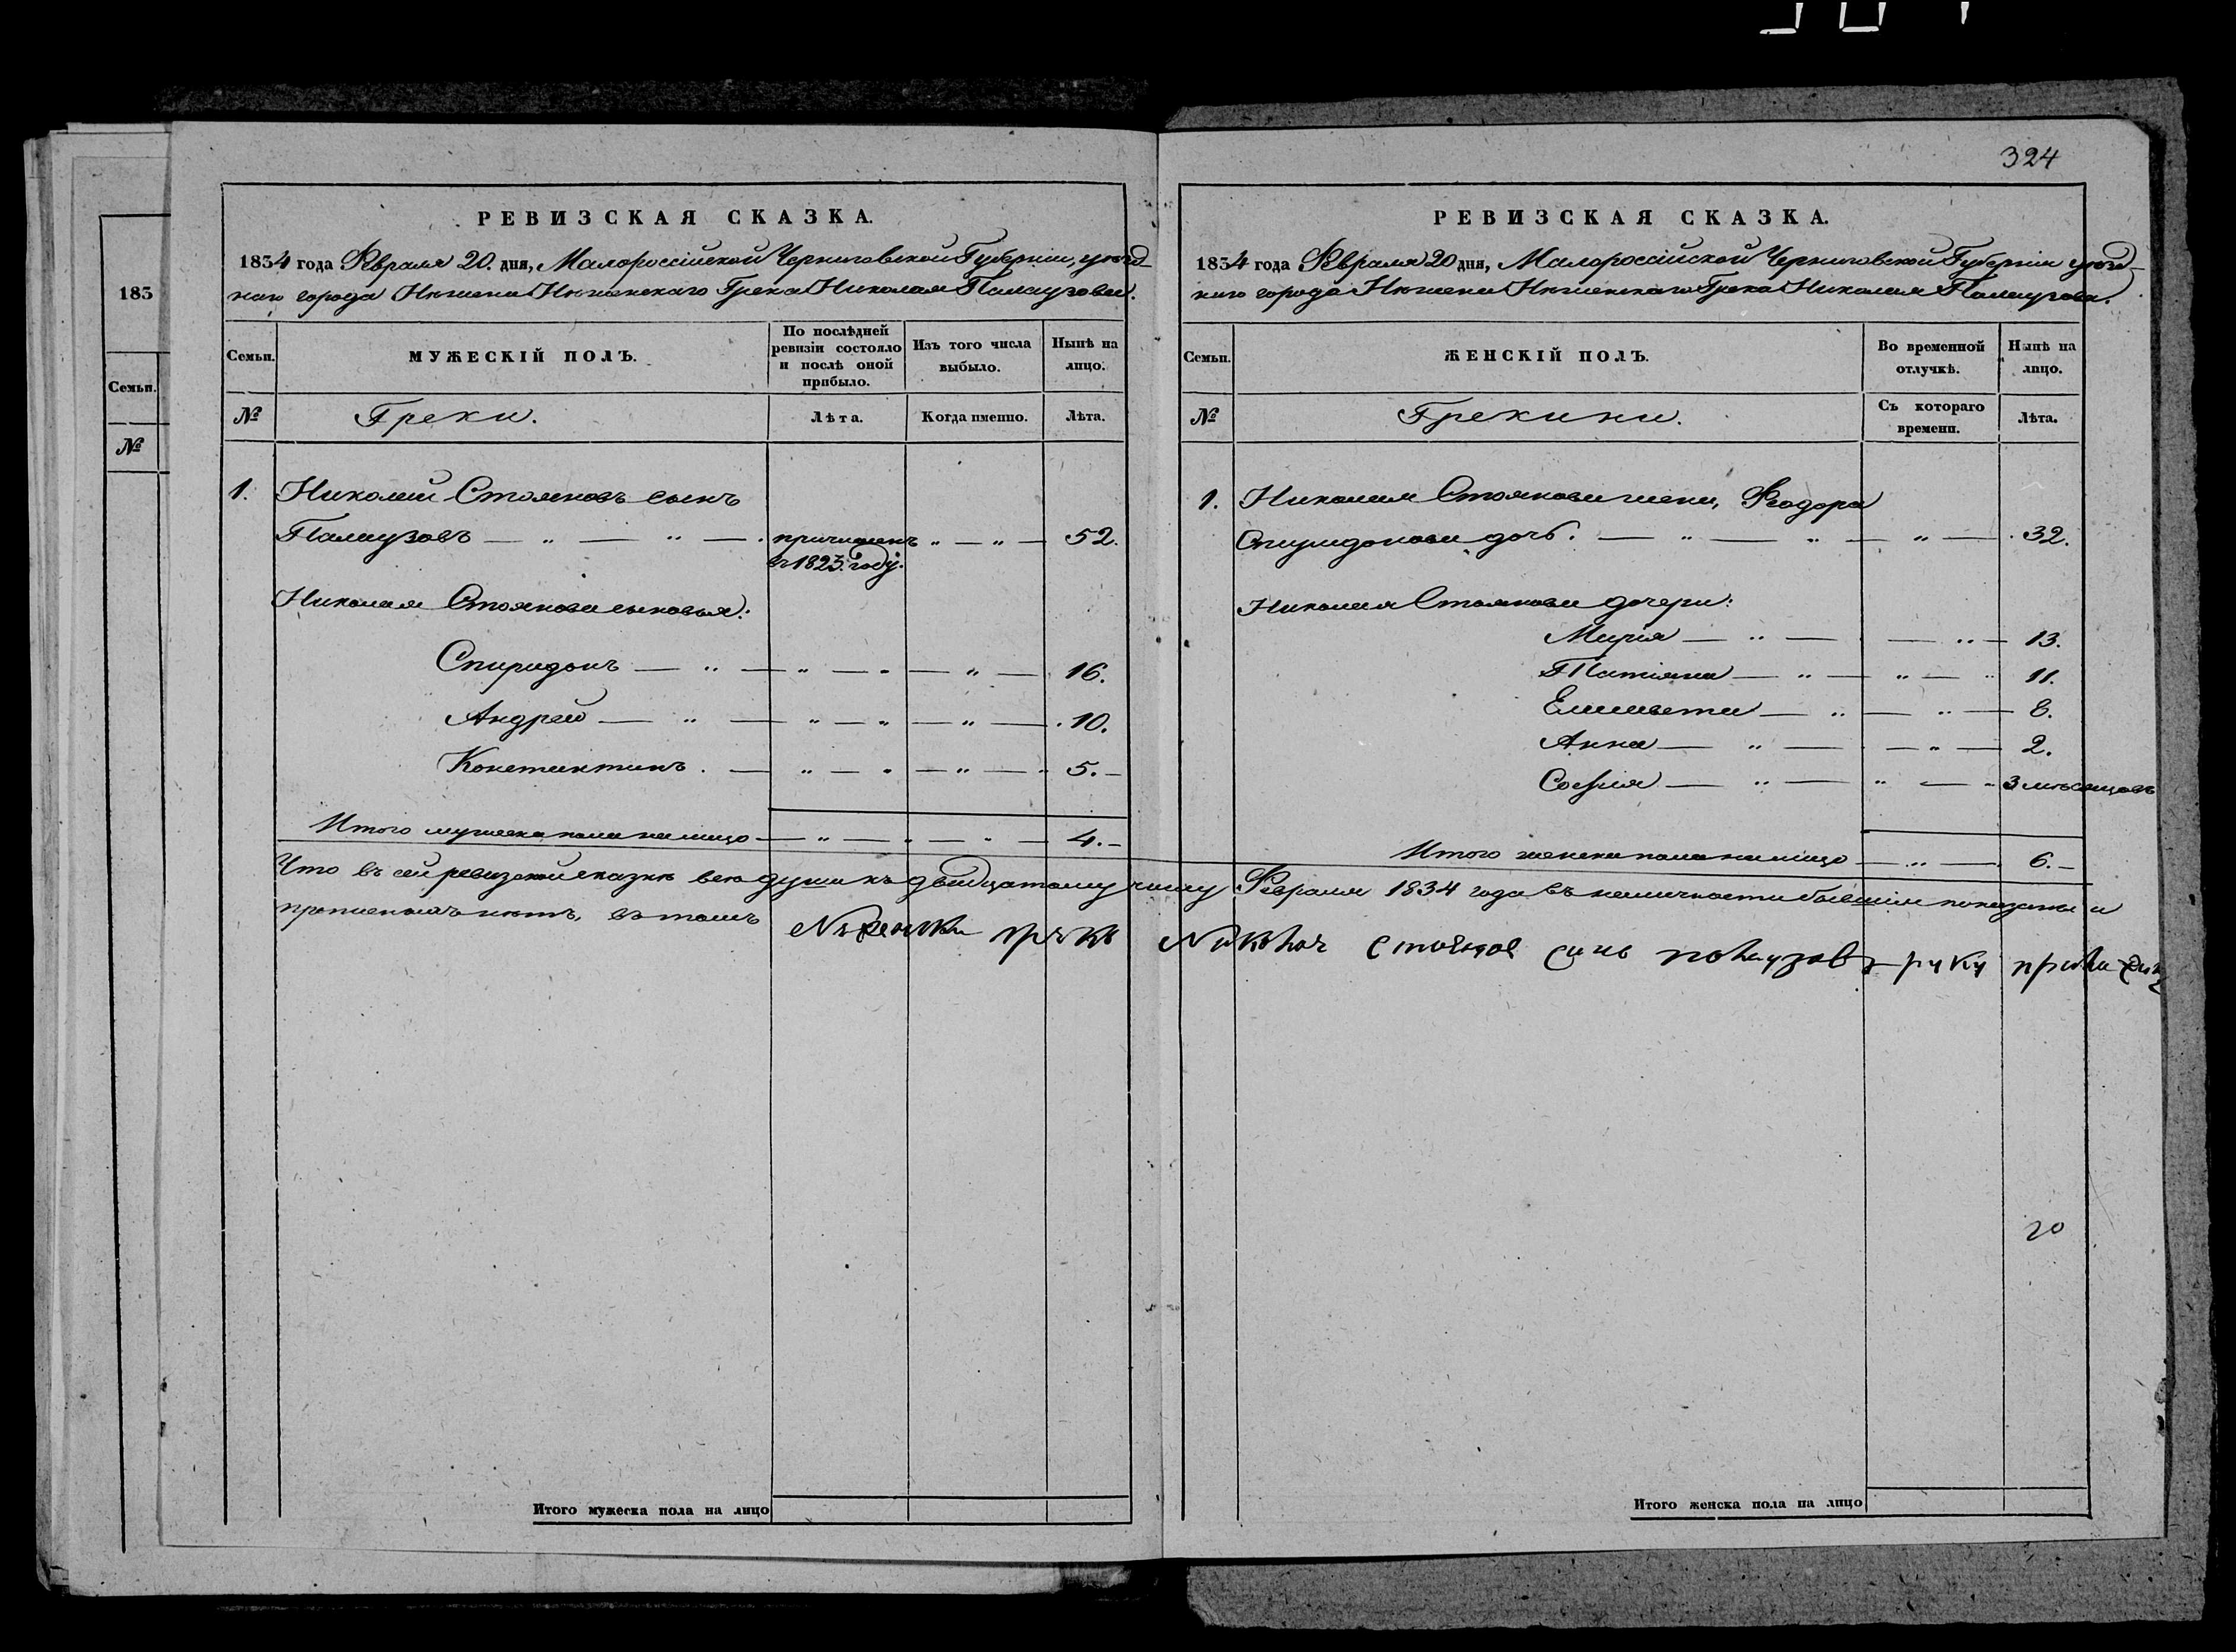 324
183
Семьи.
№
РЕВИЗСКАЯ СКАЗКА.
1834 года Февраля 20. дня, Малороссійской Черниговской Губерніи, уѣзд-
наго города Нѣжина Нѣжинскаго Грека Николая Палаузова.
Семьи.
МУЖЕСКІЙ ПОЛЪ.
По послѣдней ревизіи состояло и послѣ оной прибыло.
Изъ того числа выбыло.
Нынѣ на лицо.
№
Греки.
Лѣта.
Когда именно.
Лѣта.
1. Николай Стояновъ сынъ
Палаузовъ — „ — „ — причисленъ „ — „ — 52.
въ 1823. году.
Николая Стоянова сыновья:
Спиридонъ — „ — „ — „ — „ — 16.
Андрей — „ — „ — „ — „ — 10.
Константинъ. — „ — „ — „ — 5.
Итого мужеска пола на лицо — „ — „ — 4.
РЕВИЗСКАЯ СКАЗКА.
1834 года Февраля 20 дня, Малороссійской Черниговской Губерніи уѣзд-
наго города Нѣжина Нѣжинскаго Грека Николая Палаузова.
Семьи.
ЖЕНСКІЙ ПОЛЪ.
Во временной отлучкѣ.
Нынѣ на лицо.
№
Грекини.
Съ котораго времени.
Лѣта.
1. Николая Стоянова жена, Феодора
Спиридонова дочь. — „ — „ — „ — 32.
Николая Стоянова дочери:
Марія — „ — — „ — 13.
Татіяна — „ — „ — „ 11.
Елисавета — „ — „ — 8.
Анна — „ — — „ — 2.
Софія — „ — „ — „ 3 мѣсяцовъ
Итого женска пола на лицо — „ — 6.
Что въ сей ревизской сказкѣ всѣ души къ двадцатому числу Февраля 1834 года въ наличности бывшіе показаны и
прописныхъ нѣтъ, въ томъ грекъ Стоянов синь палаузовъ руку
20
Итого мужеска пола на лицо
Итого женска пола на лицо